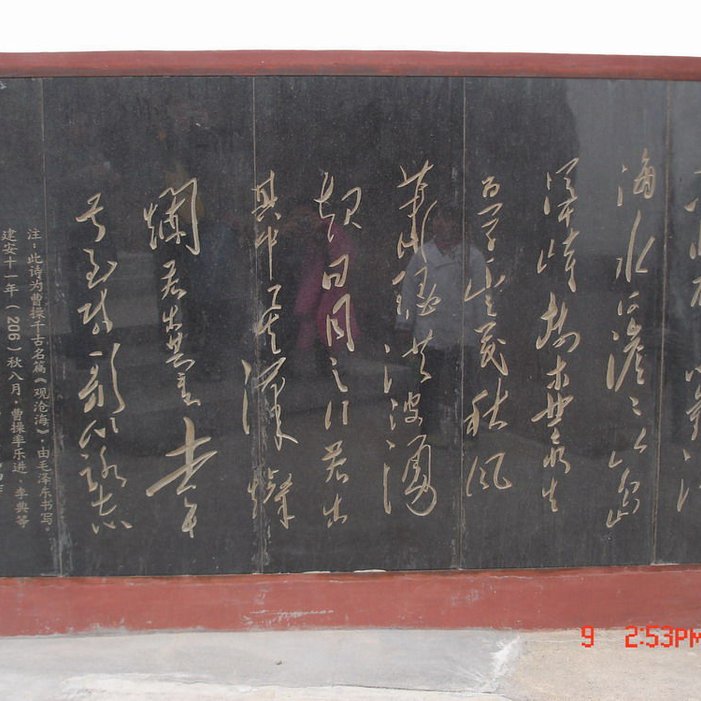 海水何澹々山岛
竦峙树木丛生
百草丰茂秋风
萧瑟洪波涌
起日月之行若出
其中星漢燦
爛若出其里幸
甚至哉歌以咏志
注：此诗为曹操千古名篇《观沧海》，由毛泽东书写。
建安十一年（206）秋八月，曹操率乐进、李典等
9 2:53PM